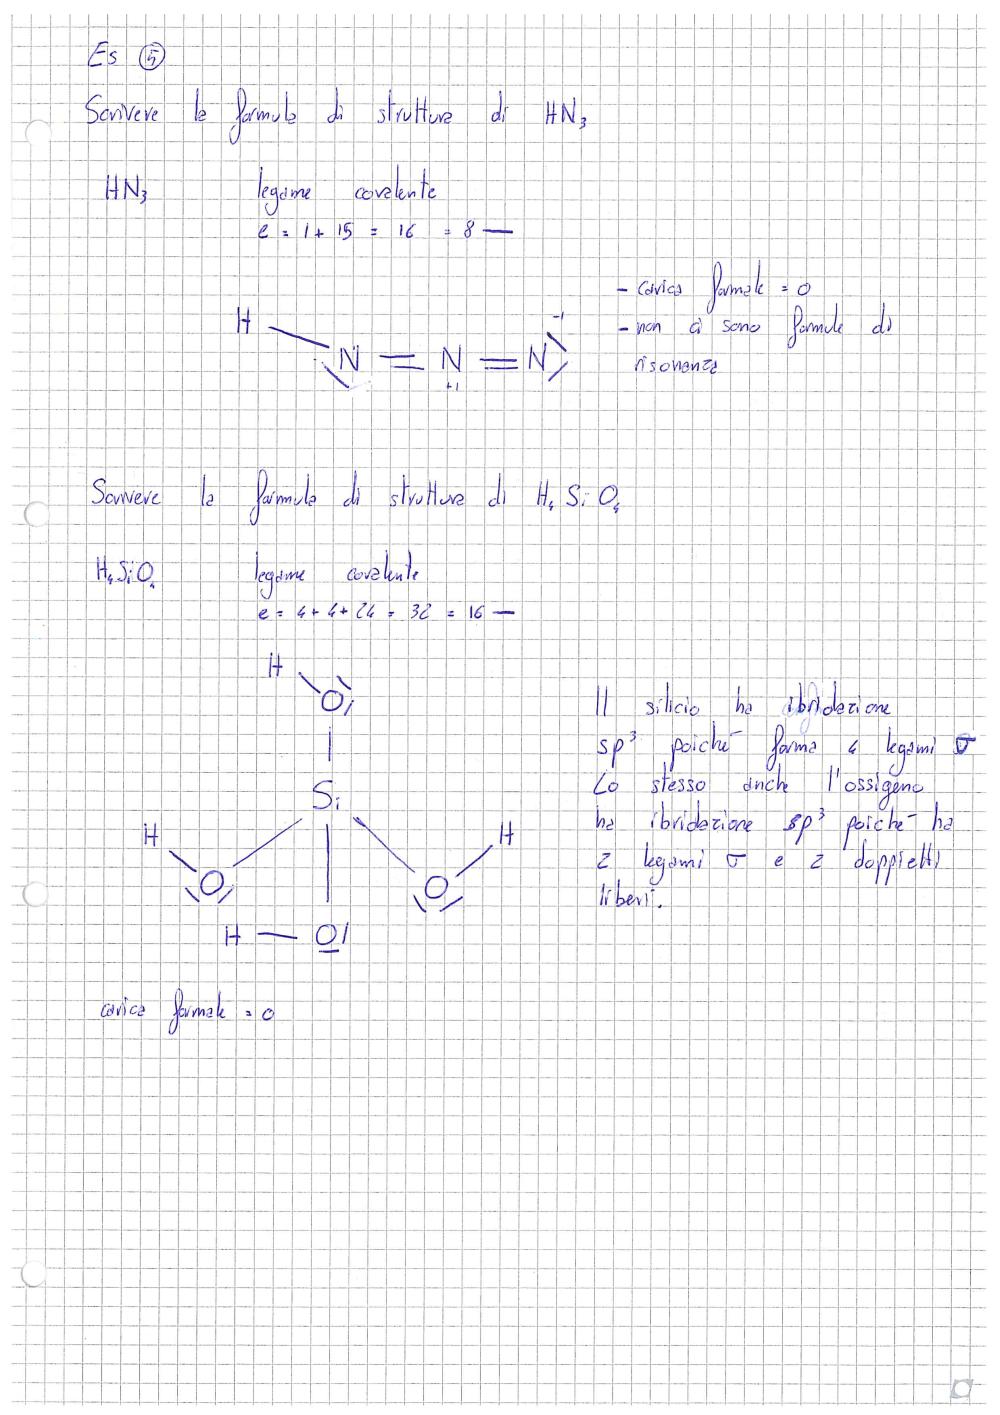 Es ⑤
Scrivere la formula di struttura di HN₃
HN₃ legame covalente
e = 1 + 15 = 16 = 8 —
- carica formale = 0
- non ci sono formule di
risonanza
H
-1
N = N = N
+1
Scrivere la formula di struttura di H₄SiO₄
H₄SiO₄ legame covalente
e = 4 + 4 + 24 = 32 = 16 —
H
O
Si
H O O H
H — O
Il silicio ha ibridazione
sp³ poiché forma 4 legami σ
Lo stesso anche l'ossigeno
ha ibridazione sp³ poiché ha
2 legami σ e 2 doppietti
liberi.
carica formale = 0